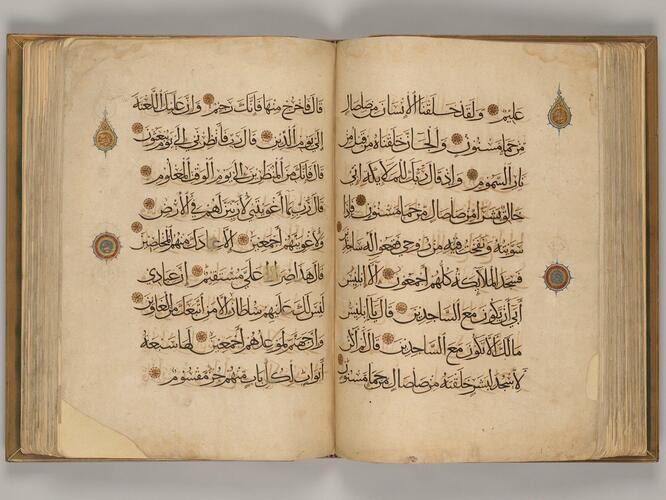 عليم ولقد خلقنا الإنسان من صلصال
من حمإ مسنون والجان خلقناه من قبل من
نار السموم وإذ قال ربك للملائكة إني
خالق بشرا من صلصال من حمإ مسنون فإذا
سويته ونفخت فيه من روحي فقعوا له ساجدين
فسجد الملائكة كلهم أجمعون إلا إبليس
أبى أن يكون مع الساجدين قال يا إبليس
مالك ألا تكون مع الساجدين قال لم أكن
لأسجد لبشر خلقته من صلصال من حمإ مسنون
قال فاخرج منها فإنك رجيم وإن عليك اللعنة
إلى يوم الدين قال رب فأنظرني إلى يوم يبعثون
قال فإنك من المنظرين إلى يوم الوقت المعلوم
قال رب بما أغويتني لأزينن لهم في الأرض
ولأغوينهم أجمعين إلا عبادك منهم المخلصين
قال هذا صراط علي مستقيم إن عبادي
ليس لك عليهم سلطان إلا من اتبعك من الغاوين
وإن جهنم لموعدهم أجمعين لها سبعة
أبواب لكل باب منهم جزء مقسوم